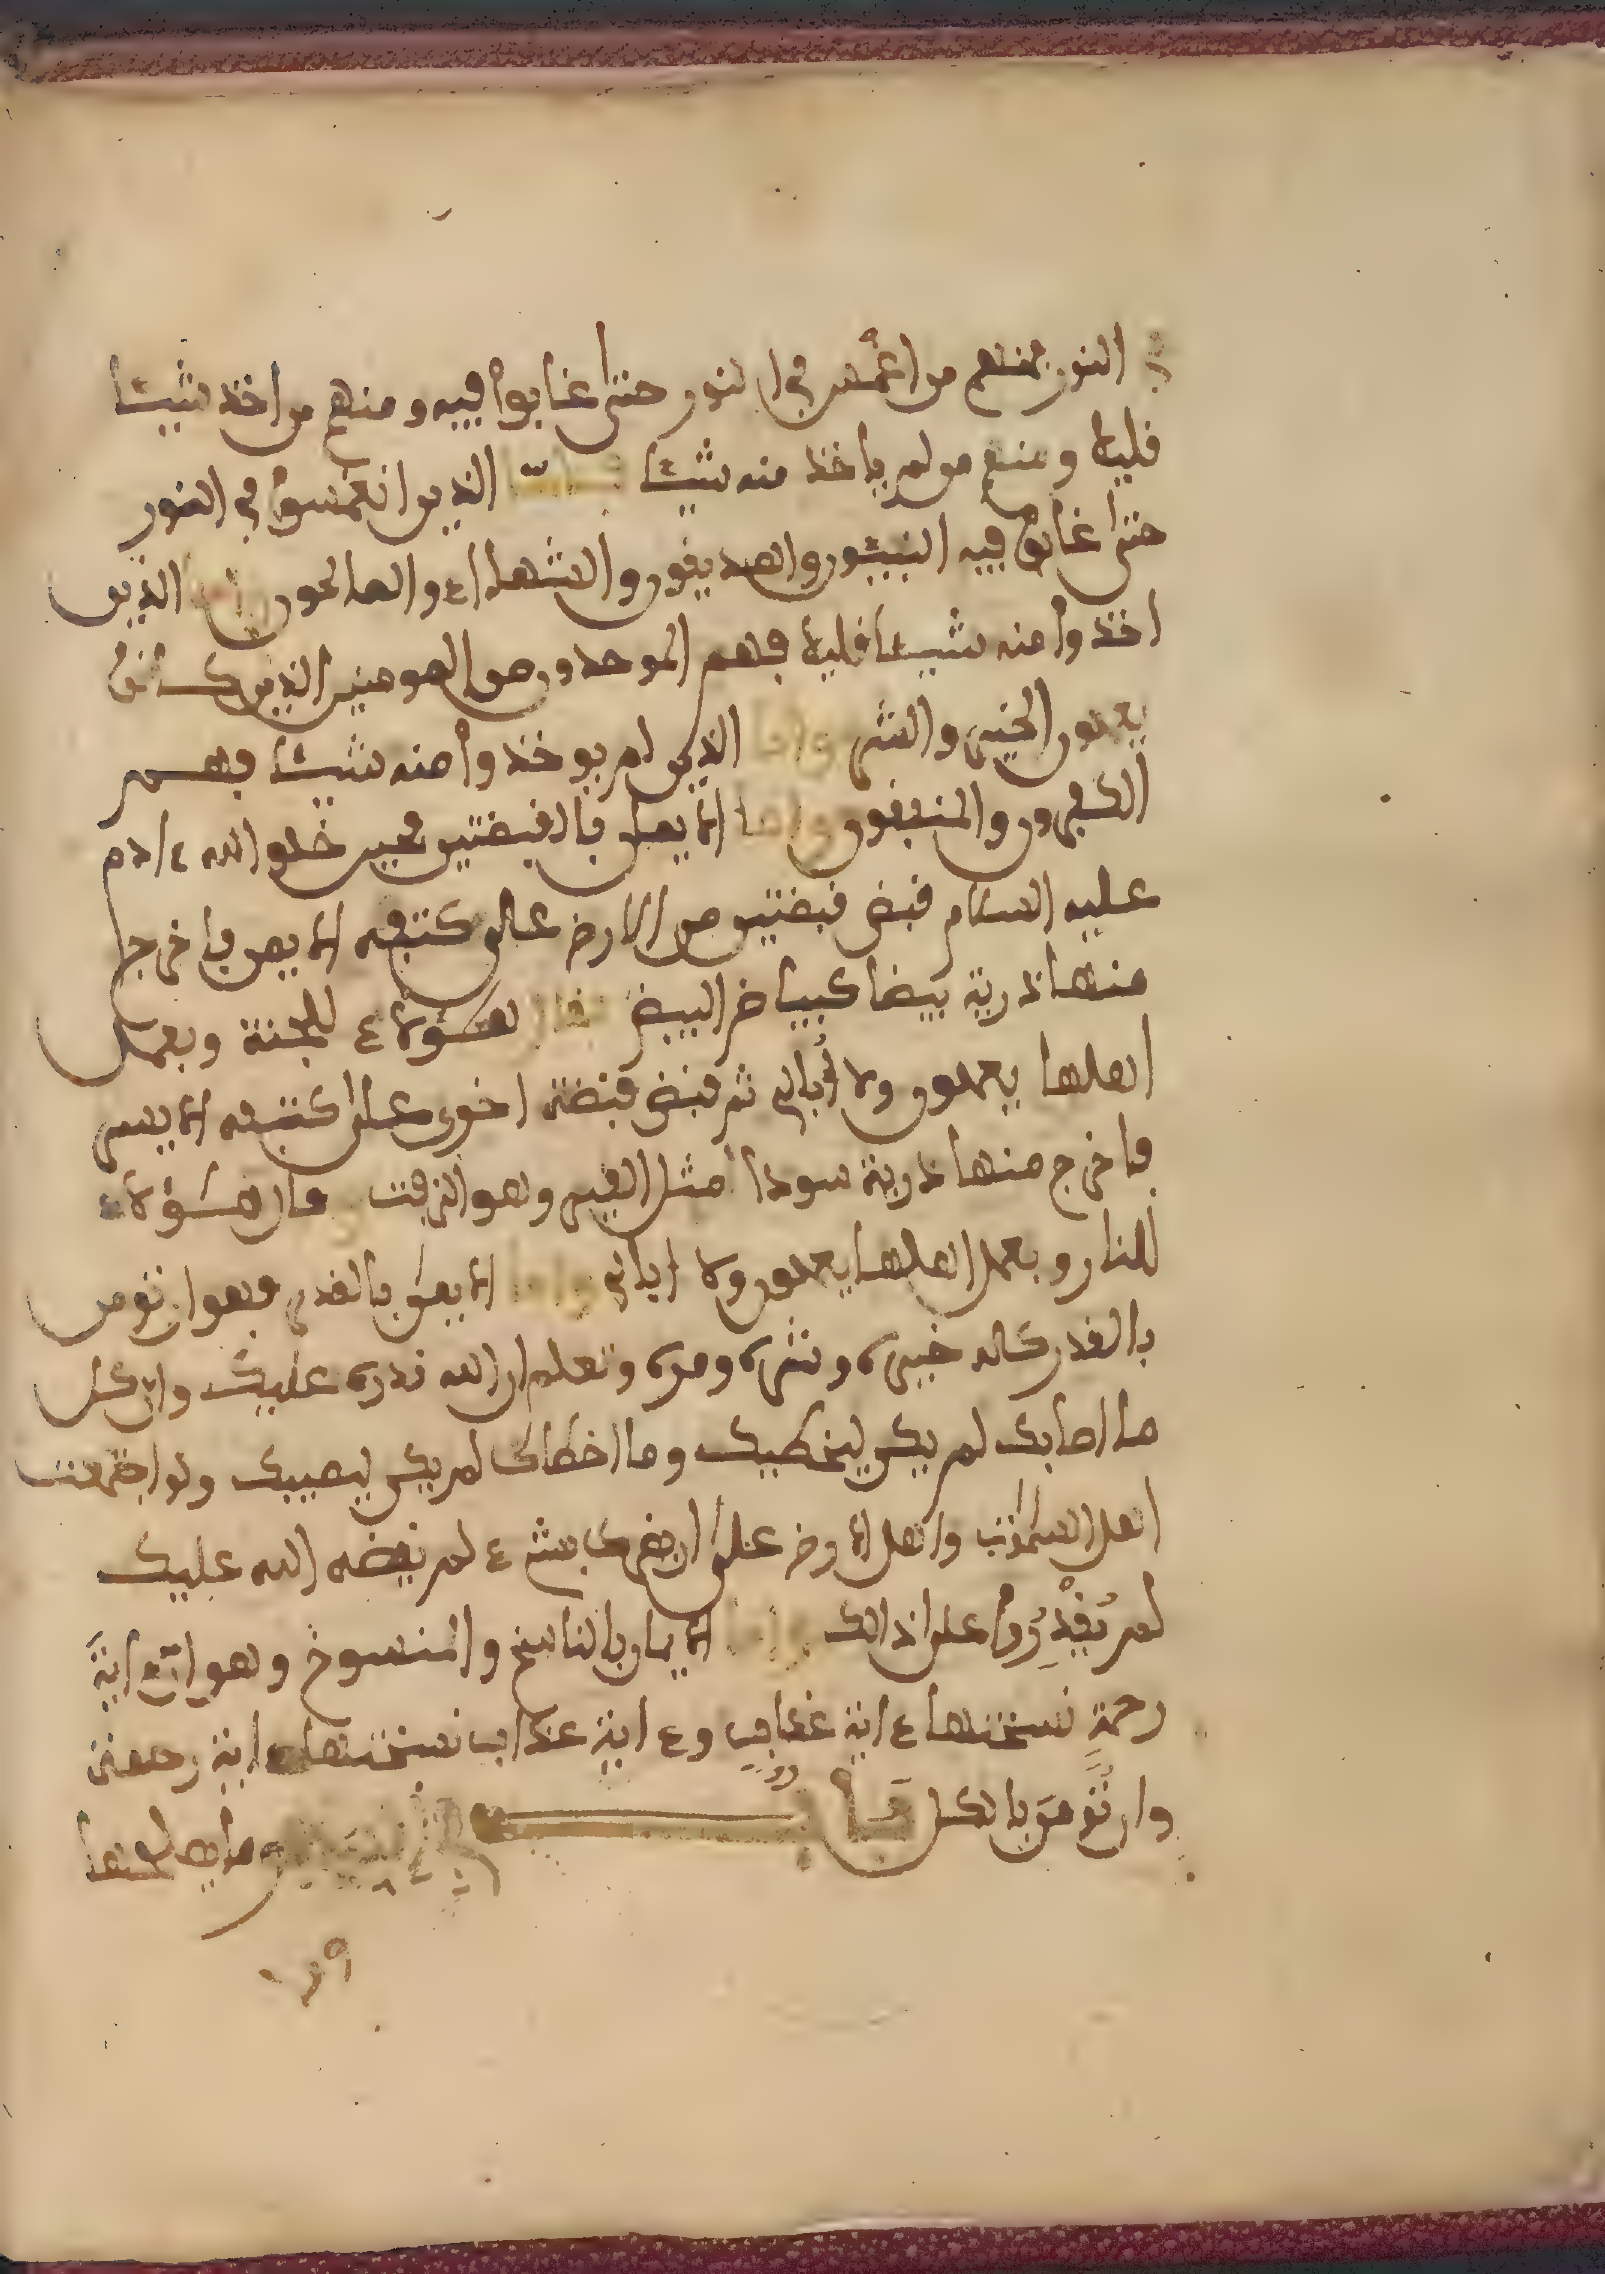 النور فمنهم من اغمس في النور حتى غابوا فيه ومنهم من اخذ شيئا
قليلا ومنهم من لم ياخذ منه شيئا فاما الذين انغمسوا في النور
حتى غابوا فيه النبيئون والصديقون والشهداء والصالحون واما الذين
اخذوا منه شيئا قليلا فهم الموحدون من المومنين الذين كانوا
يعملون الخير والشر واما الذين لم يوخذوا منه شيئا فهم
الكفرون والمنفقون واما الايمان بالقبضتين فحين خلق الله ءادم
عليه السلام قبض قبضتين من الارض على كتفه الايمن فاخرج
منها ذرية بيضا كبياض البيض فقال هؤلاء للجنة وبعمل
اهلها يعملون ولا أبالي ثم قبض قبضة اخرى على كتفه الايسر
فاخرج منها ذرية سودا مثل القير وهو الزفت فقال هؤلاء
للنار وبعمل اهلها يعملون ولا ابالي واما الايمان بالقدر فهو ان تومن
بالقدر كله خيره وشره ومره وتعلم ان الله قدره عليك وان كل
ما اصابك لم يكن ليخطيك وما اخطاك لم يكن ليصيبك ولو اجتمعت
اهل السموت واهل الارض على ان يضرك بشيء لم يقضه الله عليك
لم يقدروا على ذالك واما الايمان بالناسخ والمنسوخ وهو ان ءاية
رحمة نسختها ءاية عذاب وءاية عذاب نسختها ءاية رحمة
وان تومن بالكل